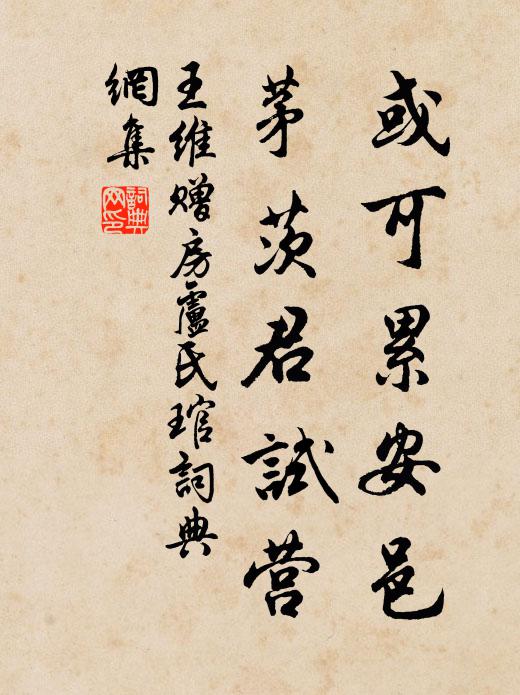 或可累安邑
茅茨君試营
王维赠房盧氏琯詞典
網集
詞典
网印